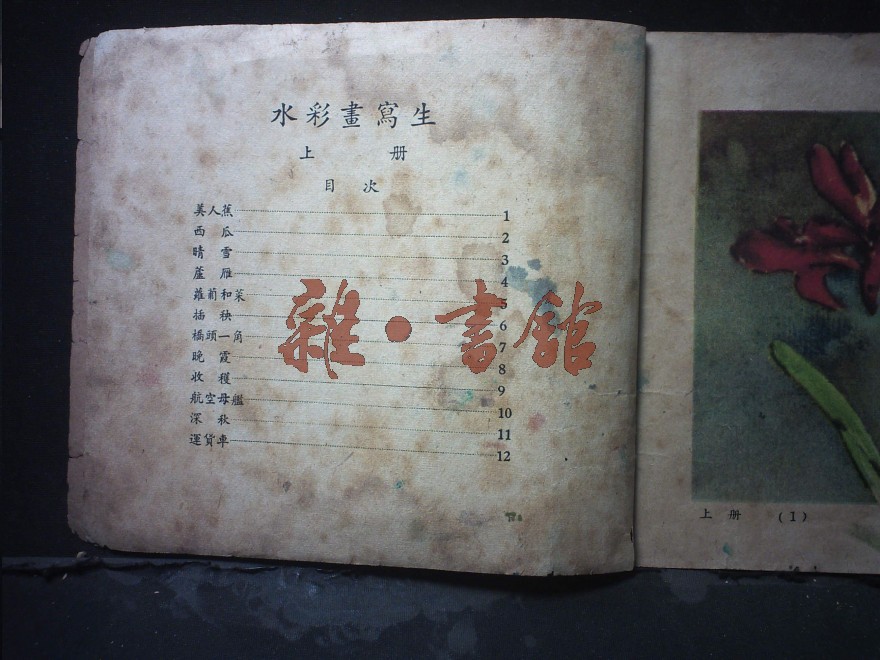 水彩畫寫生
上 册
目 次
美人蕉 1
西 瓜 2
晴 雪 3
蘆 雁 4
蘿蔔和菜 5
插 秧 6
橋頭一角 7
晚 霞 8
收 穫 9
航空母艦 10
深 秋 11
運貨車 12
雜·書館
上 册 (1)